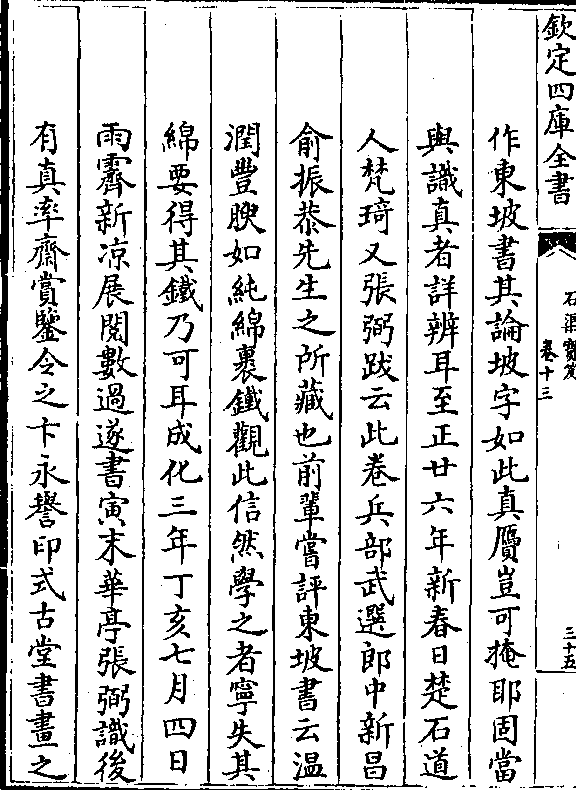 欽定四庫全書
石渠寳笈
卷十三
三十五
作東坡書其論坡字如此真贗豈可掩耶固當
與識真者詳辨耳至正廿六年新春日楚石道
人梵琦又張弼跋云此卷兵部武選郎中新昌
俞振恭先生之所藏也前輩嘗評東坡書云温
潤豐腴如純綿裹鐵觀此信然學之者寧失其
綿要得其鐵乃可耳成化三年丁亥七月四日
雨霽新凉展閱數過遂書寅末華亭張弼識後
有真率齋賞鑒令之卞永譽印式古堂書畫之